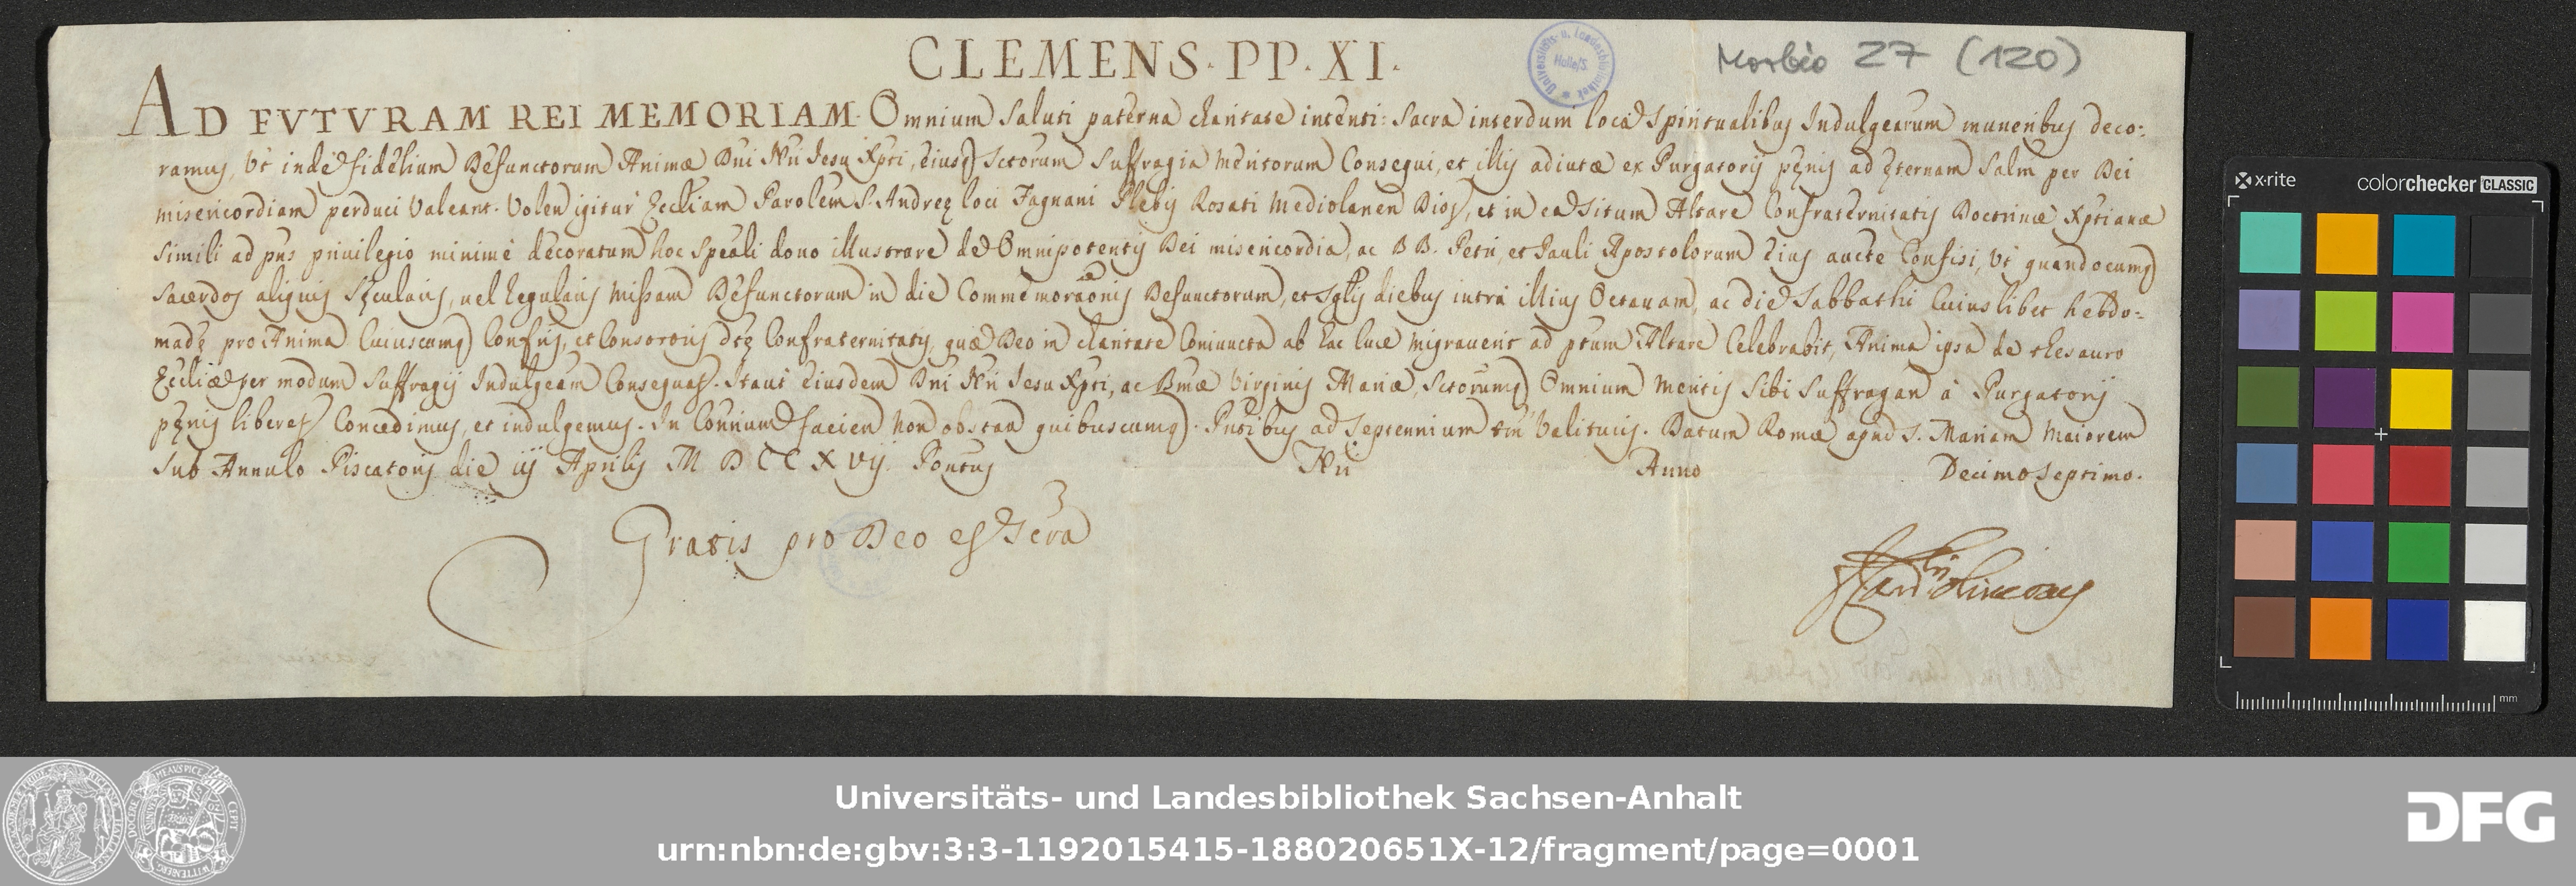 CLEMENS · PP · XI ·
Morbio 27 (120)
Universitäts- u. Landesbibliothek Halle/S.
AD FVTVRAM REI MEMORIAM · Omnium Saluti paterna charitate intenti: Sacra interdum loca Spiritualibus Indulgearum muneribus deco:
ramus, Ut inde fidelium Defunctorum Animæ Dni Nri Jesu Xpti, eiusq Sctorum Suffragia meritorum Consequi, et illis adiutæ ex Purgatorij pęnis ad ęternam Salm per Dei
misericordiam perduci Valeant. Volen igitur Eccliam Parolem S. Andreę loci Fagnani Plebis Rosati Mediolanen Dios, et in ea Situm Altare Confraternitatis Doctrinæ Xptianæ
Simili ad pns priuilegio minimè decoratum hoc Speali dono illustrare de Omnipotentis Dei misericordia, ac BB. Petri et Pauli Apostolorum Eius aucte Confisi, Ut quandocumq
Sacerdos aliquis Sęcularis, uel Regularis Missam Defunctorum in die Commemoraonis Defunctorum, et Sglis diebus intrà illius Octauam, ac die Sabbathi Cuiuslibet hebdo-
madę pro Anima Cuiuscumq Confris, et Consororis dtę Confraternitatis, quæ Deo in charitate Coniuncta ab hac luce migrauerit ad ptum Altare Celebrabit, Anima ipsa de thesauro
Eccliæ per modum Suffragij Indulgeam Consequat. Itaut Eiusdem Dni Nri Jesu Xpti, ac Bmæ Virginis Mariæ, Sctorumq Omnium meritis Sibi Suffragan à Purgatorij
pęnis liberet Concedimus, et indulgemus. In Contrium facien non obstan quibuscumq. Pntibus ad Septennium tm Valituris. Datum Romæ apud S. Mariam Maiorem
Sub Annulo Piscatoris die iij Aprilis MDCCXVij. Pontus Nri Anno Decimoseptimo.
Gratis pro Deo et Scra
F Card Oliverius
x·rite
colorchecker CLASSIC
mm
Universitäts- und Landesbibliothek Sachsen-Anhalt
urn:nbn:de:gbv:3:3-1192015415-188020651X-12/fragment/page=0001
DFG